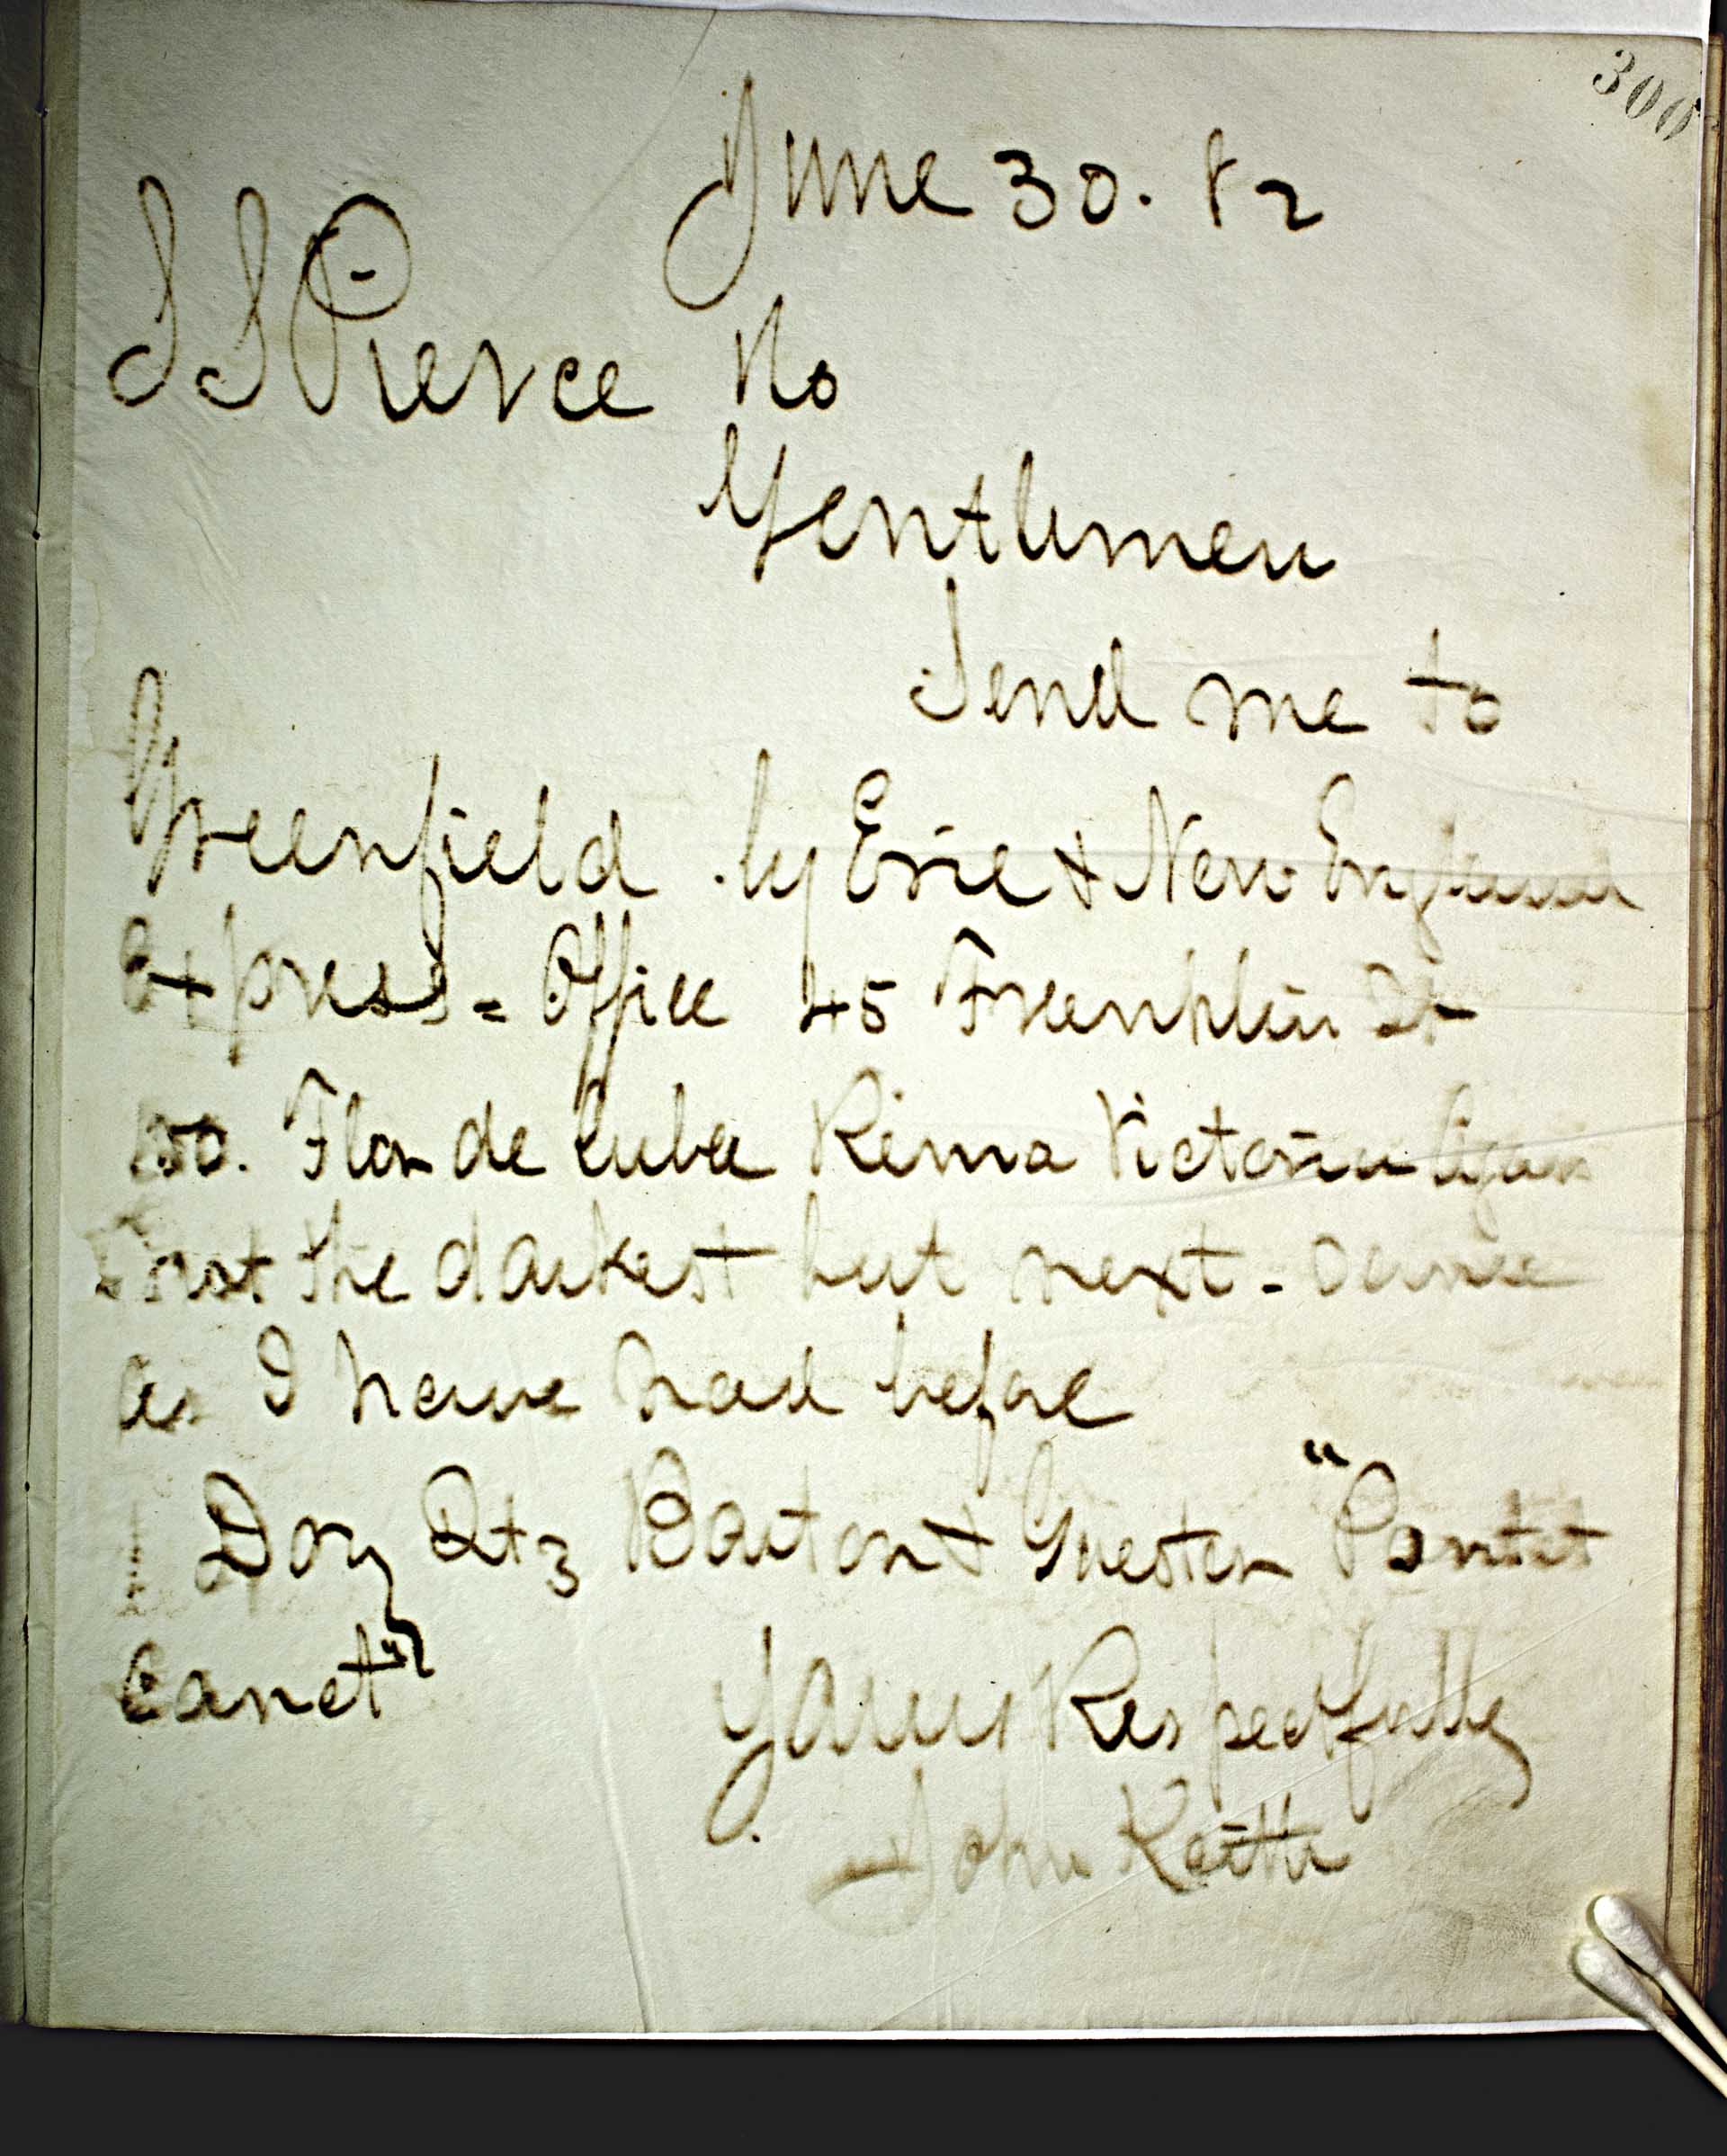 300
June 30. 82
S S Pierce Co
Gentlemen
Send me to
Greenfield by Erie & New England
Express = Office 45 Franklin St
Flor de Cuba Reina Victoria Cigars
not the darkest but next - same
as I have had before
Doz Qts Barton & Guestier "Pontet
Canet"
Yours Respectfully
John Keith